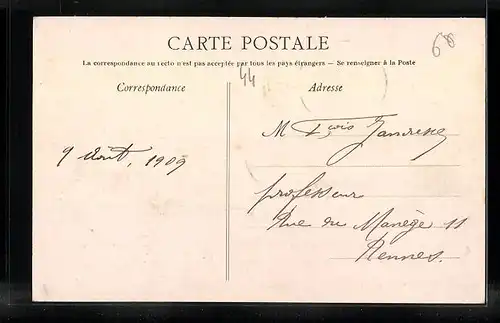 68
CARTE POSTALE
La correspondance au recto n'est pas acceptée par tous les pays étrangers — Se renseigner à la Poste
44
Correspondance
Adresse
M Fçois
9 Août, 1909
professeur
Rue du Manège 11
Rennes.